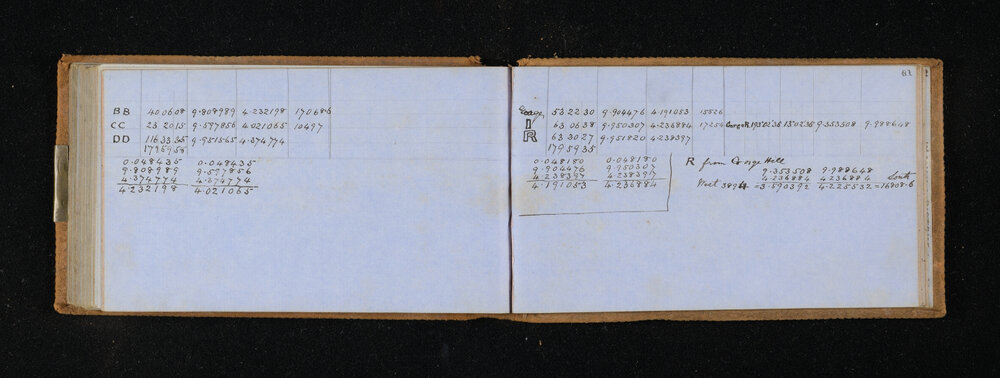 BB 40 06 08 9.808989 4.232198 17068.6
CC 23 20 15 9.597856 4.021065 10497
DD 116 33 35 9.951565 4.374774
179 59 58
0.048435 0.048435
9.808989 9.597856
4.374774 4.374774
4.232198 4.021065
61
George 53 22 30 9.904476 4.191053 15526
I 63 06 38 9.950307 4.236884 17254 George R 193°02'35 13 02 35 9.353508 9.988648
R 63 30 27 9.951820 4.238397
179 59 35
0.048180 0.048180
9.904476 9.950307
4.238397 4.238397
4.191053 4.236884
R from George Hill
9.353508 9.988648
4.236884 4.236884 South
West 3894 = 3.590392 4.225532 = 16808.6